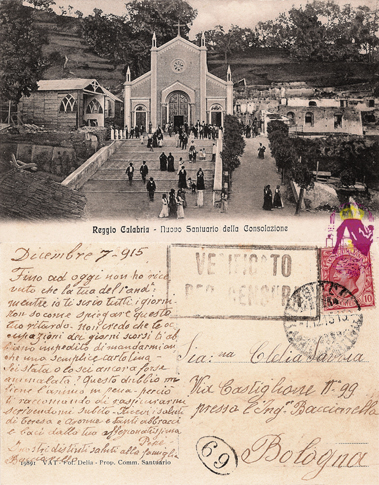 Reggio Calabria - Nuovo Santuario della Consolazione
Dicembre 7 - 915
Fino ad oggi non ho rice
vuto che la tua del 1 and:
mentre io te scrivo tutti i giorni
non so come spiegare questo
tuo ritardo. Non credo che le oc
cupazioni dei giorni scorsi ti ab
biano impedito di mandarmi an
che una semplice cartolina
Sei stata o lo sei ancora forse
ammalata? Questo dubbio mi
tiene l'animo in pena - perciò
ti raccomando di rassicurarmi
scrivendomi subito - Ricevi i saluti
di Teresa e nonne e tanti abbracci
e baci dalla tua affezionatissima
nostri distinti saluti alla famiglia
VERIFICATO
PER CENSURA
10
Sig:na Clelia Savoia
Via Castiglione N° 99
presso l'Ing: Baccianella
Bologna
69
VAT - Pol. Della - Prop. Comm. Santuario